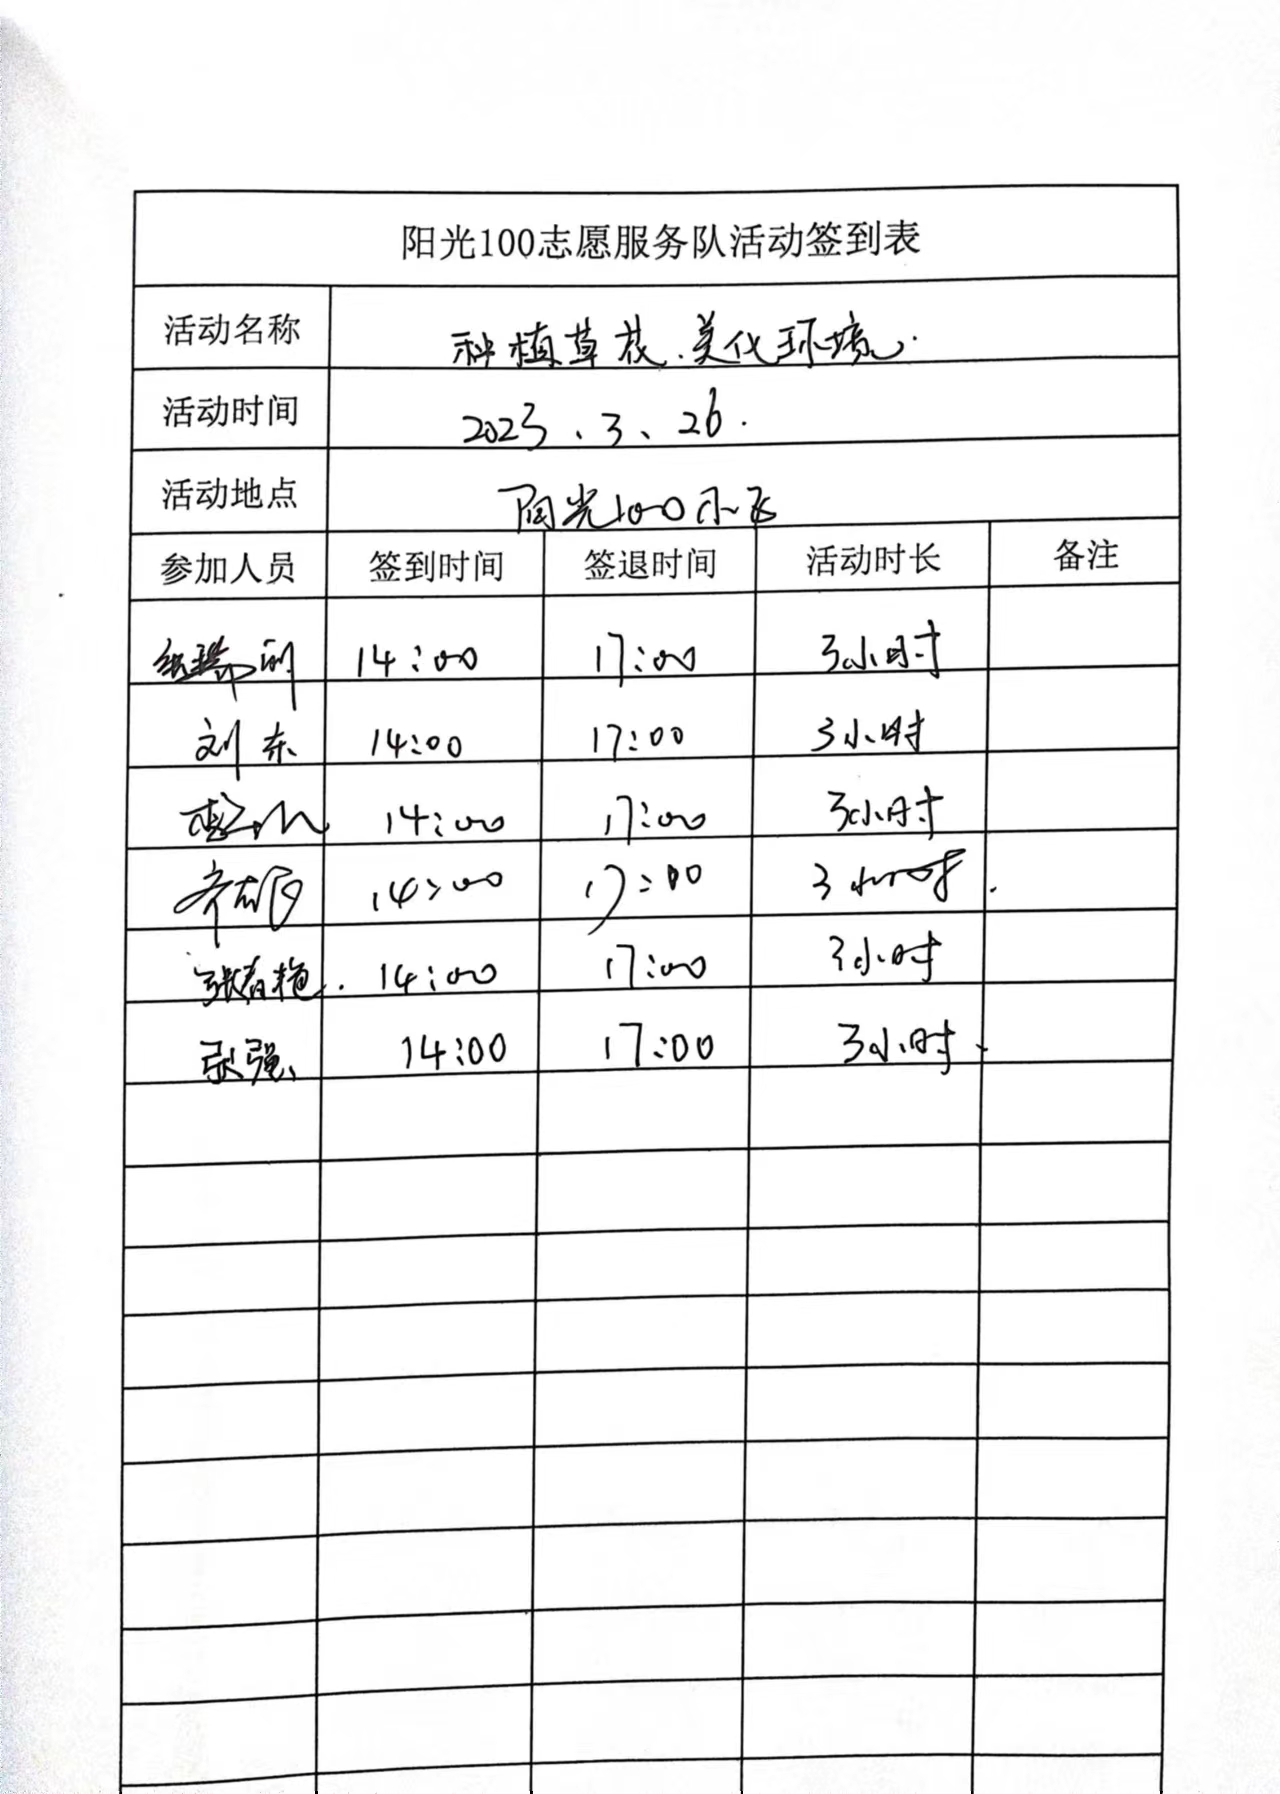 阳光100志愿服务队活动签到表
活动名称 种植草花、美化环境.
活动时间 2023、3、26.
活动地点 阳光100小区
参加人员 签到时间 签退时间 活动时长 备注
14:00 17:00 3小时
刘东 14:00 17:00 3小时
14:00 17:00 3小时
14:00 17:00 3小时.
张春艳. 14:00 17:00 3小时
张强、 14:00 17:00 3小时、